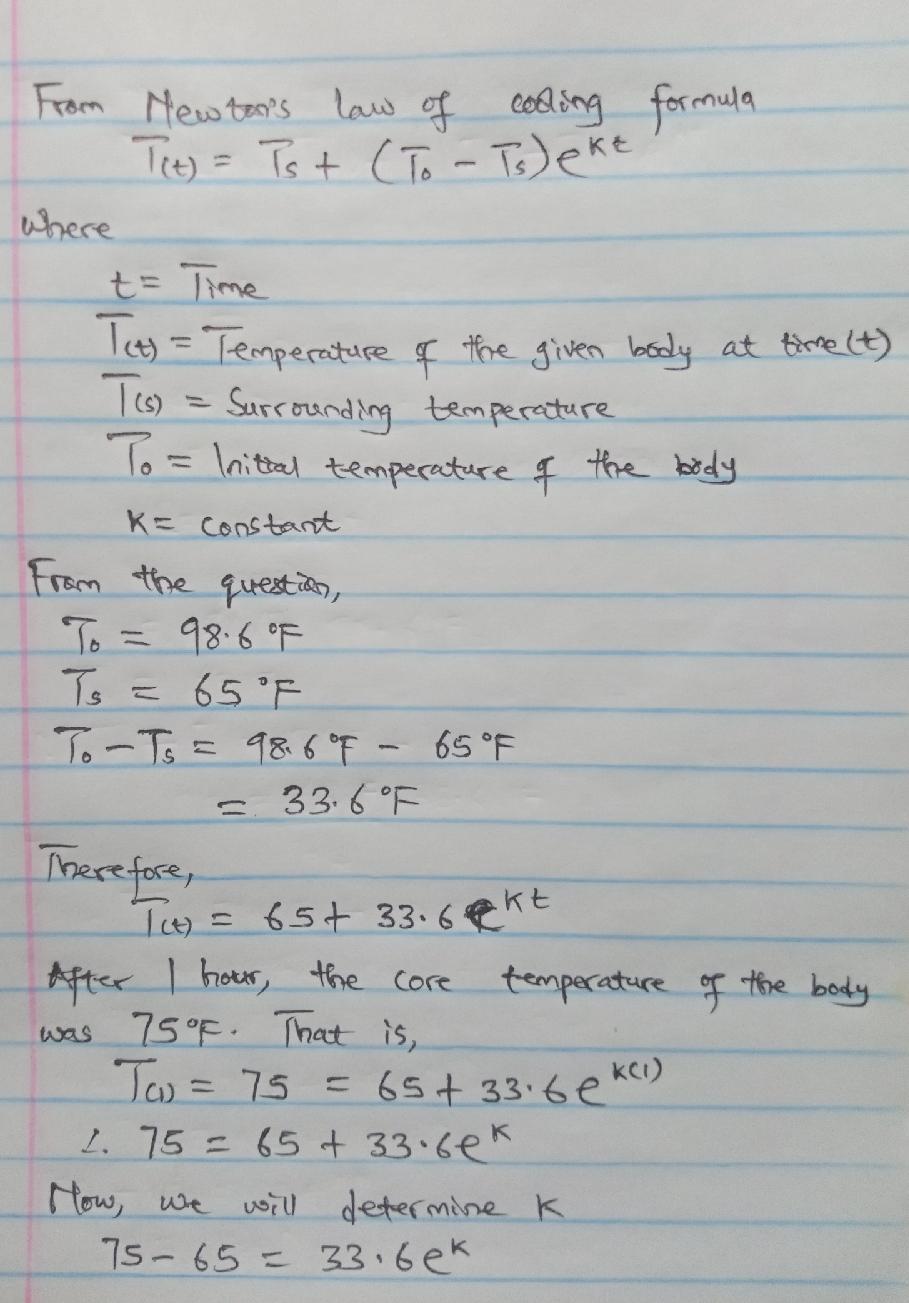 From Newton's law of cooling formula
T(t) = Ts + (To - Ts)e^kt
where
t = Time
T(t) = Temperature of the given body at time (t)
T(s) = Surrounding temperature
To = Initial temperature of the body
K = constant
From the question,
To = 98.6 °F
Ts = 65 °F
To - Ts = 98.6 °F - 65 °F
= 33.6 °F
Therefore,
T(t) = 65 + 33.6 e^kt
After 1 hour, the core temperature of the body
was 75 °F. That is,
T(1) = 75 = 65 + 33.6 e^k(1)
∴ 75 = 65 + 33.6e^k
Now, we will determine K
75 - 65 = 33.6e^k